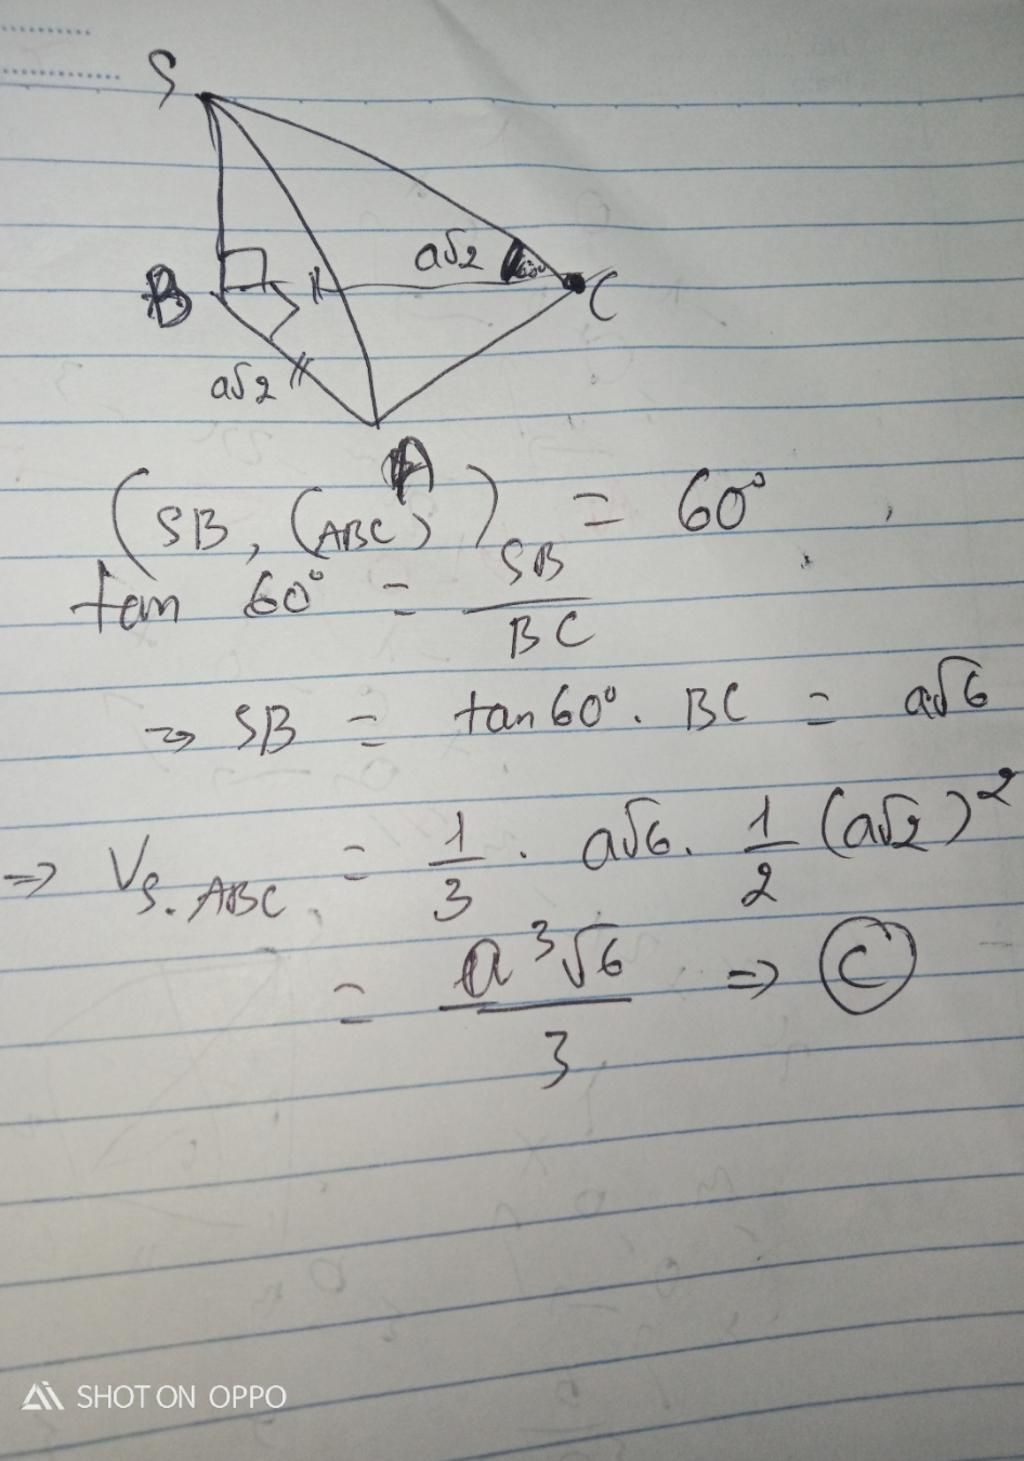 S
a√2 60°
B C
a√2
A
(SB, (ABC)) = 60°
tan 60° = SB/BC
=> SB = tan60°. BC = a√6
=> V_S.ABC = 1/3 . a√6. 1/2 (a√2)²
= a³√6/3 => C
SHOT ON OPPO